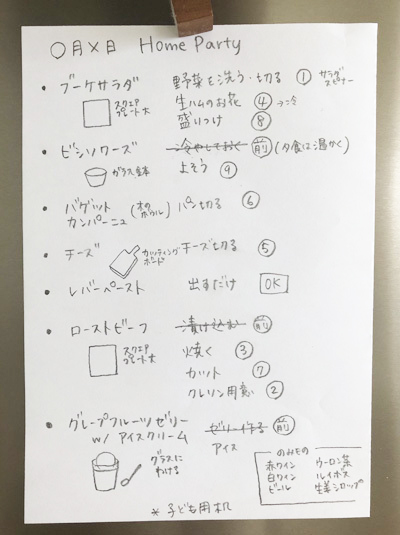 ○月×日 Home Party
・ブーケサラダ 野菜を洗う・切る ① サラダスピナー
スクエアプレート大 生ハムのお花 ④→冷
盛りつけ ⑧
・ビシソワーズ 冷やしておく 前 (夕食は温かく)
ガラス鉢 よそう ⑨
・バゲット
カンパーニュ (木のボウル) パン切る ⑥
・チーズ カッティングボード チーズ切る ⑤
・レバーペースト 出すだけ OK
・ローストビーフ 漬け込む 前
スクエアプレート大 焼く ③
カット ⑦
クレソン用意 ②
・グレープフルーツゼリー ゼリー作る 前
w/ アイスクリーム アイス
グラスにわける
のみもの
赤ワイン ウーロン茶
白ワイン ルイボス
ビール 生姜シロップ
*子ども用机